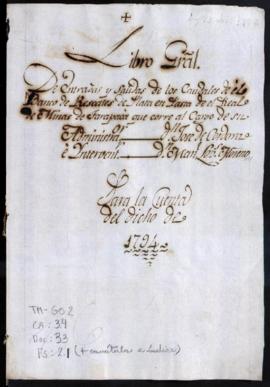 Libro Gral.
De Entradas y Salidas de los Caudales de el
Banco de Rescates de Plata en Pasta de el Real
de Minas de Tarapaca que corre al Cargo de su
Administ.or D.n Jose de Cordova
é Intervent.r D.n Man.l
Para la Cuenta
del dicho de
1794
TM-GO 2
CA: 34
Doc: 33
Fs: 21